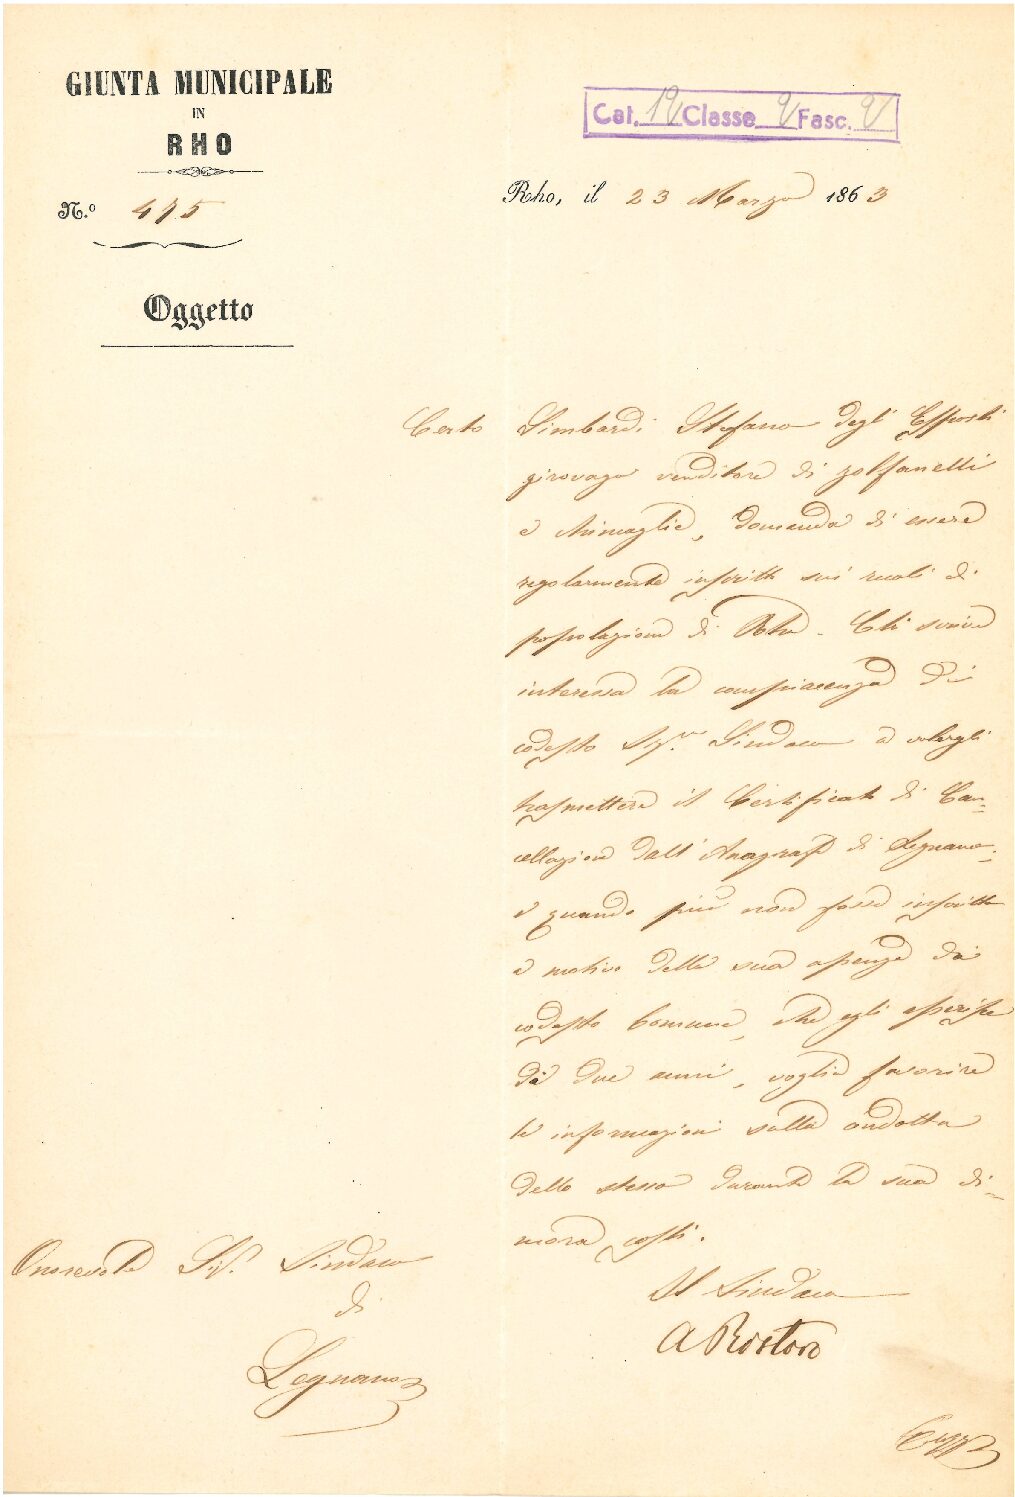 GIUNTA MUNICIPALE
IN
RHO
N.º 475
Oggetto
Cat. 12 Classe 2 Fasc. 2
Rho, il 23 Marzo 1863
Certo Limbardi Stefano degli Esposti
girovago venditore di zolfanelli
e chincaglie, domanda di essere
regolarmente inscritto sui ruoli di
popolazione di Rho. Chi scrive
interessa la compiacenza di
codesto Sigr. Sindaco a volergli
trasmettere il Certificato di Can-
cellazione dall'Anagrafe di Legnano;
e quando più non fosse inscritto
a motivo della sua assenza da
codesto Comune, che egli asserisce
da due anni, voglia favorire
le informazioni sulla condotta
dello stesso durante la sua di-
mora costì.
Il Sindaco
A Rostoro
Onorevole Sigr. Sindaco
di
Legnano